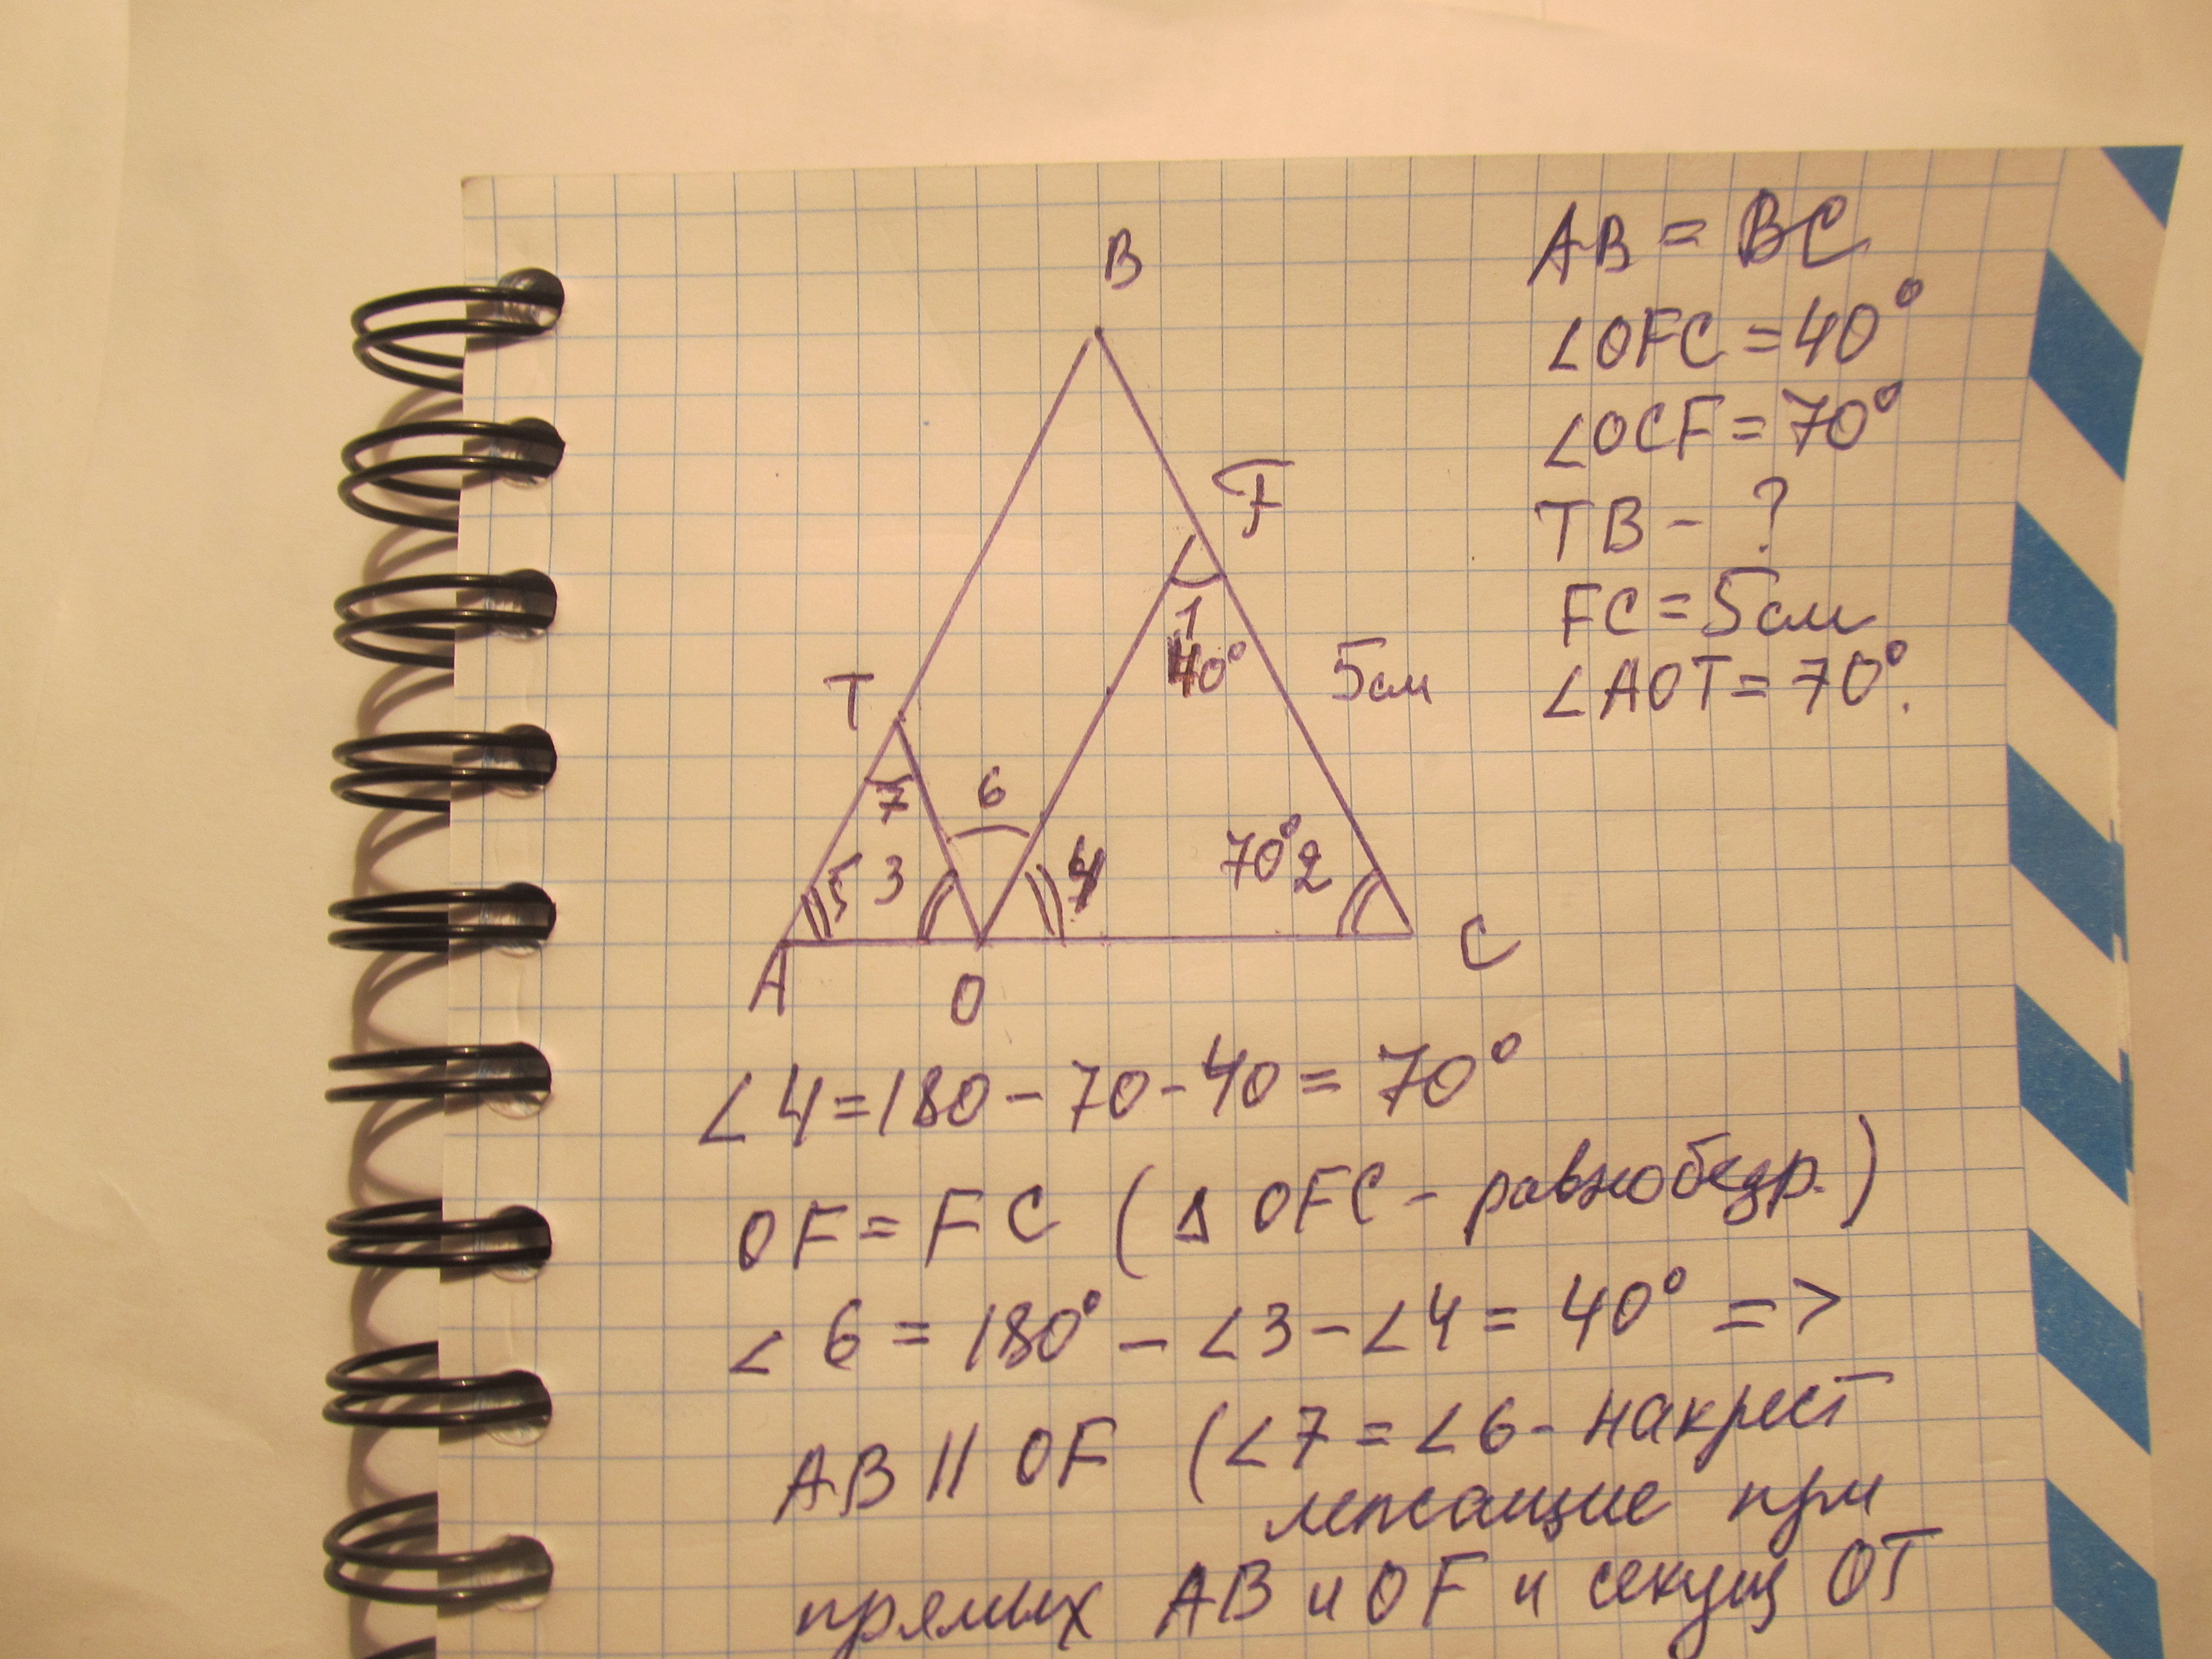 B
AB = BC
∠OFC = 40°
∠OCF = 70°
TB - ?
FC = 5см
∠AOT = 70°.
F
1
40°
5см
T
7
6
5
3
4
70°
2
A
O
C
∠4 = 180 - 70 - 40 = 70°
OF = FC (Δ OFC - равнобедр.)
∠6 = 180° - ∠3 - ∠4 = 40° =>
AB || OF (∠7 = ∠6 - накрест
лежащие при
прямых AB и OF и секущ OT